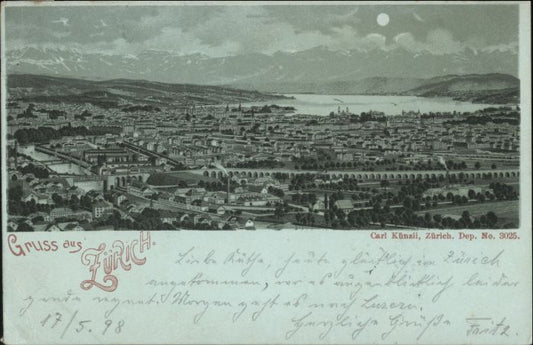 Gruss aus ZÜRICH.
Carl Künzli, Zürich. Dep. No. 3025.
Liebe Käthe, heute glücklich in Zürich
angekommen, wo es augenblicklich leider
gerade regnet. Morgen geht es nach Luzern.
17/5.98 Herzliche Grüße Fritz.